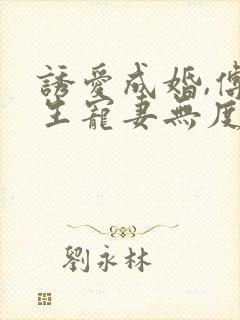 誘愛成婚,傅
生寵妻無度
劉永林